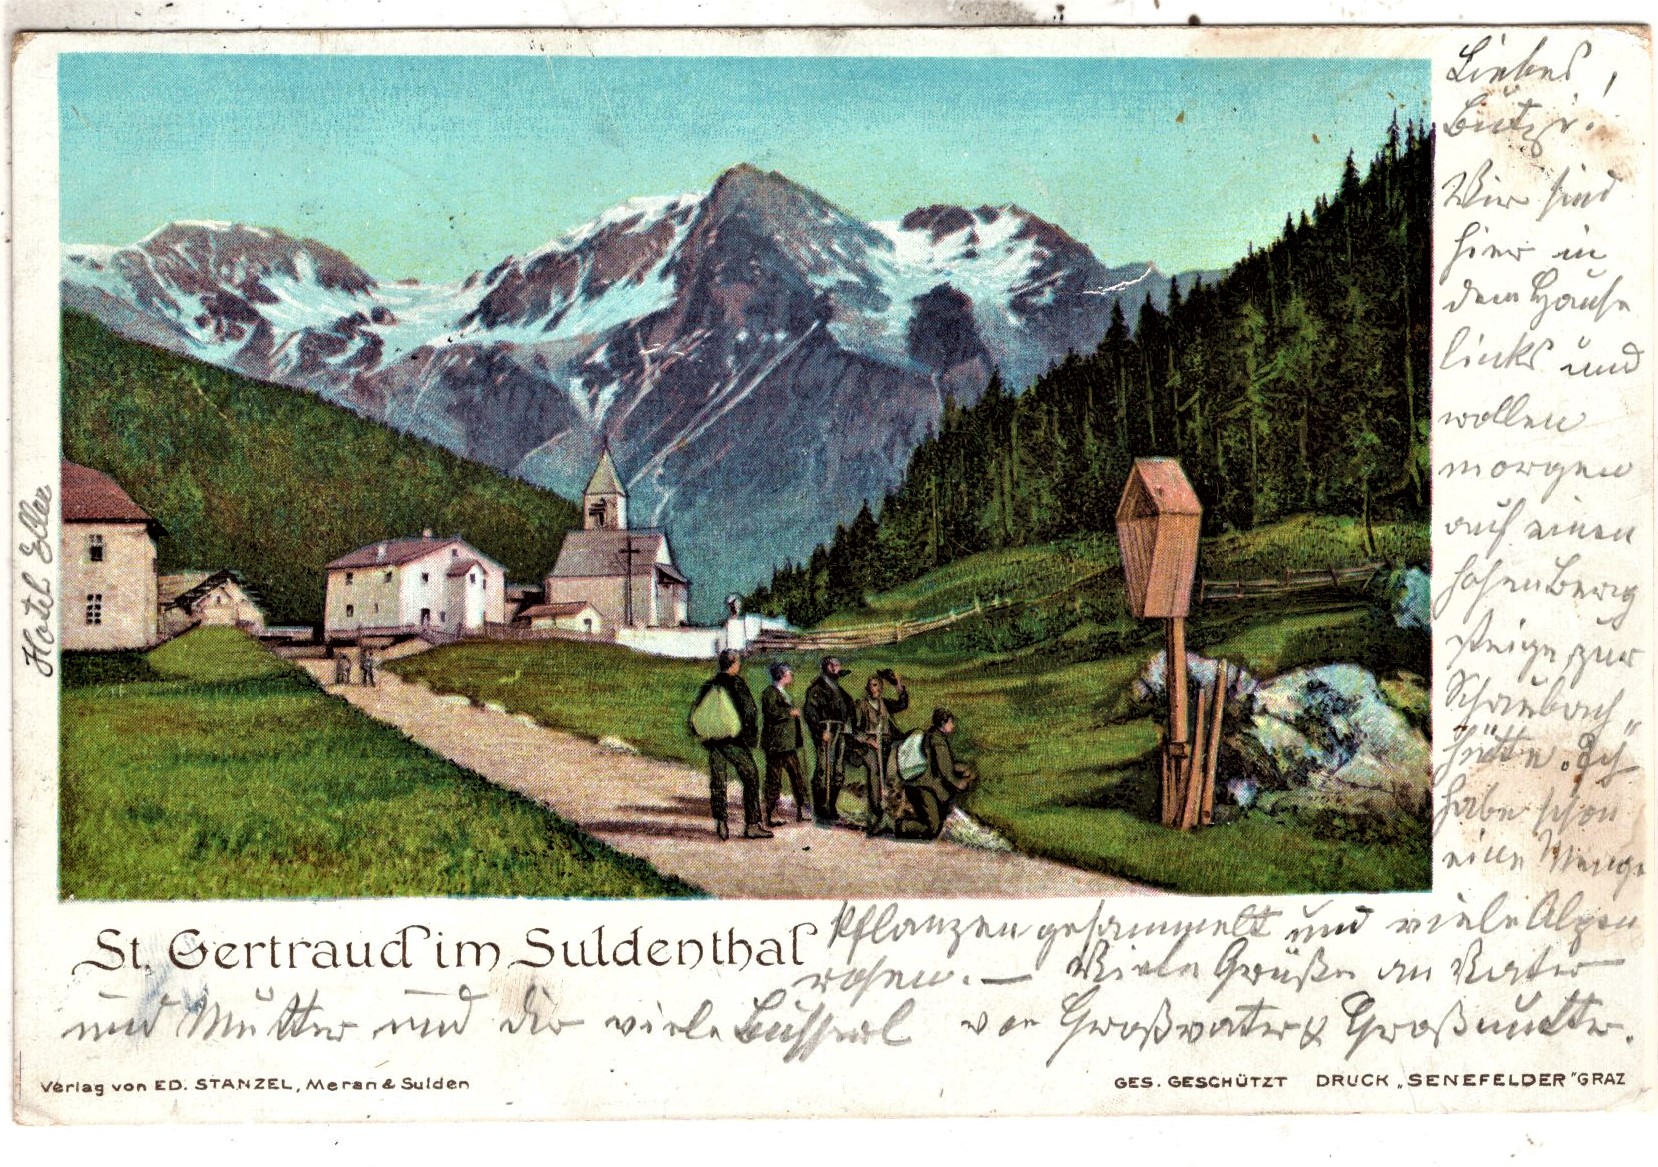 Liebes
Butzi!
Wir sind
hier in
dem Hause
links und
wollen
morgen
auf einen
hohen Berg
steigen, zur
Schaubach-
hütte. Ich
habe schon
eine Menge
Pflanzen gesammelt und viele Alpen
rosen. — Viele Grüße an Vater
und Mutter und dir viele Busserl von Großvater & Großmutter.
Hotel Eller
St. Gertraud im Suldenthal
Verlag von ED. STANZEL, Meran & Sulden
GES. GESCHÜTZT DRUCK „SENEFELDER" GRAZ